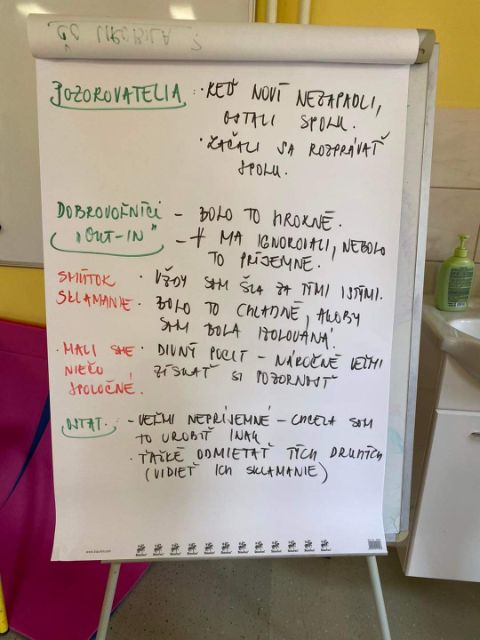 ČO UROBILA S
POZOROVATELIA · KEĎ NOVÍ NEZAPADLI,
OSTALI SPOLU.
· ZAČALI SA ROZPRÁVAŤ
SPOLU.
DOBROVOĽNÍCI – BOLO TO HROZNÉ.
"OUT-IN" – + MA IGNOROVALI, NEBOLO
TO PRÍJEMNÉ.
SMÚTOK · VŽDY SOM ŠLA ZA TÝMI ISTÝMI.
SKLAMANIE · BOLO TO CHLADNÉ, AKOBY
SOM BOLA IZOLOVANÁ.
· MALI SME · DIVNÝ POCIT – NÁROČNÉ VEĽMI
NIEČO ZÍSKAŤ SI POZORNOSŤ
SPOLOČNÉ.
OSTAT. – VEĽMI NEPRÍJEMNÉ – CHCELA SOM
TO UROBIŤ INAK
· ŤAŽKÉ ODMIETAŤ TÝCH DRUHÝCH
(VIDIEŤ ICH SKLAMANIE)